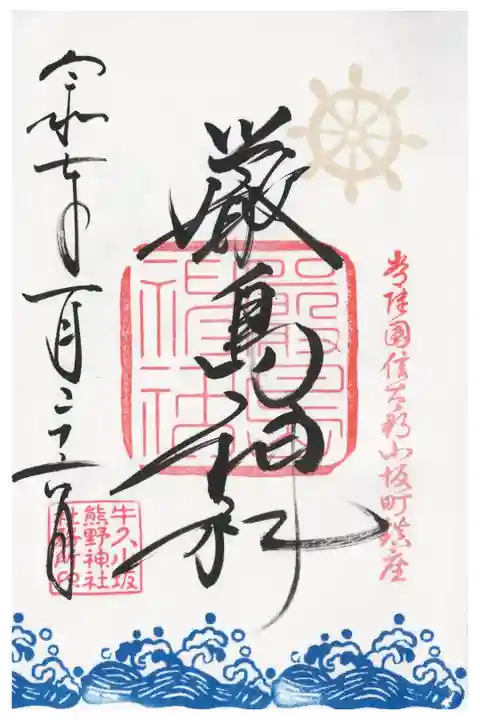 常陸国信太郡小坂町鎮座
厳島神社
嚴島
神社
令和七年一月二十二日
牛久小坂
熊野神社
社務所印